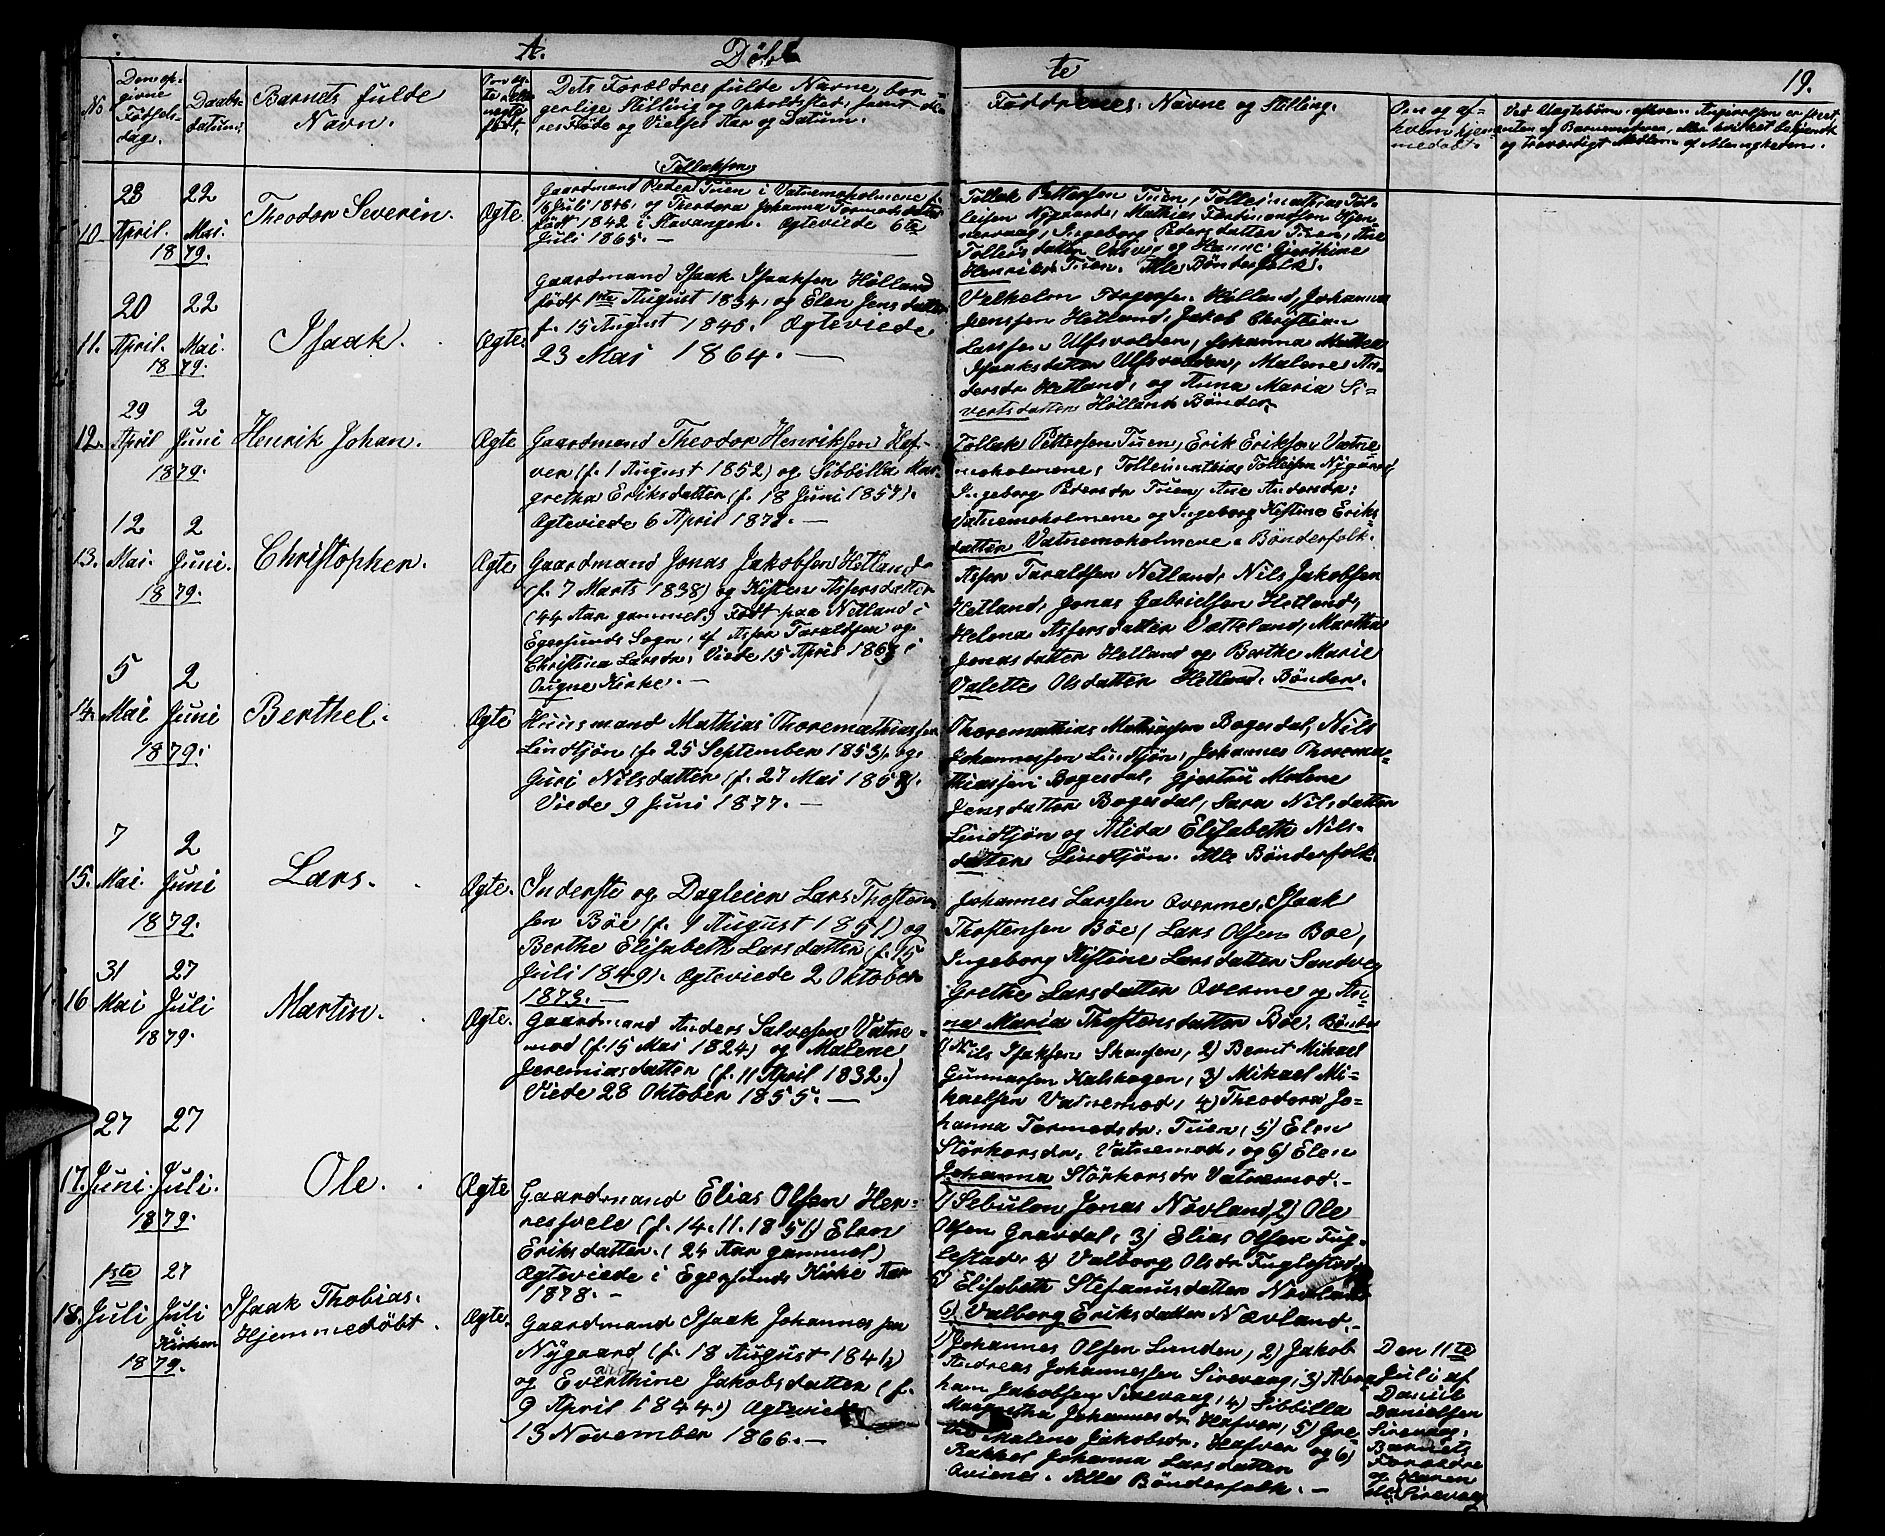 A. Døbte 19.
No
Den op-
givne
Fødsels-
dag.
Daabs-
datum.
Barnets fulde
Navn.
Dets Forældres fulde Navne, bor-
gerlige Stilling og Opholdssted, samt de-
res Føde og Vielses Aar og Datum.
Faddrenes Navne og Stilling.
Om og af
hvem hjem-
medøbt.
10.
23
April
22
Mai
1879.
Theodor Severin.
Ægte
Tollaksen
Gaardmand Peder Tuen i Vatnemoholmene f.
Juli 1846, og Theodora Johanna Tormodsdatter
født 1842 i Stavanger. Ægteviede 6te
Juli 1865. —
Tollak Pettersen Tuen, Tolleimathias Tol-
leisen Nygaard, Mathias Ferdinandsen Hjen-
nervaag, Ingeborg Pedersdatter Tuen, Ane
Henriksdr Tuen. Alle Bønderfolk.
11.
20
April
22
Mai
1879.
Isaak.
Ægte
Gaardmand Isaak Isaaksen Hølland
født 1ste August 1834, og Elen Jensdatter
f. 15 August 1840. Ægteviede
23 Mai 1864. —
Vilhelm Torgersen Hølland, Johannes
Jenssen Hetland, Jakob Christian
Larssen Ulfsvolden, Johanna
Isaaksdatter Ulfsvolden, Malene An-
dersdr Hetland, og Anna Maria Si-
vertsdatter Hølland. Bønder.
12.
29
April
2
Juni
1879.
Henrik Johan.
Ægte
Gaardmand Theodor Henriksen Haf-
ver (f. 1 August 1852) og Sibbilla Mar-
gretha Eriksdatter (f. 18 Juni 1857).
Ægteviede 6 April 1878. —
Tollak Pettersen Tuen, Erik Eriksen Vatne-
moholmene, Tolleimathias Tolleisen Nygaard,
Ingeborg Pedersdr Tuen, Ane Andersdr:
Vatnemoholmene og Ingeborg Kistine Eriks-
datter Vatnemoholmene. Bønderfolk.
13.
12
Mai.
2
Juni.
1879.
Christopher.
Ægte
Gaardmand Jonas Jakobsen Hetland
(f. 7 Marts 1838) og Kisten Assersdatter
(44 Aar gammel.) Født paa Netland i
Egersunds Sogn, af Asser Taraldsen og
Christina Larsdr: Viede 15 April 1863 i
Ougne Kirke. —
Asser Taraldsen Netland, Nils Jakobsen
Hetland, Jonas Gabrielsen Hetland,
Helena Assersdatter Vatteland, Martha
Jonasdatter Hetland og Berthe Marie
Valette Olsdatter Hetland. Bønder.
14.
5
Mai
2
Juni
1879.
Berthel.
Ægte
Huusmand Mathias Thoremathiassen
Lindtjøn (f. 25 September 1853) og
Guri Nilsdatter (f. 27 Mai 1853).
Viede 9 Juni 1877. —
Thoremathias Mathiassen Bogesdal, Nils
Johannessen Lindtjøn, Johannes Thorema-
thiassen Bogesdal, Gjertru Malene
Jensdatter Bogesdal, Sara Nilsdatter
Lindtjøn og Alida Elisabeth Nils-
datter Lindtjøn. Alle Bønderfolk.
15.
7
Mai.
2
Juni
1879.
Lars.
Ægte.
Inderste og Dagleier Lars Thosten-
sen Bøe (f. 9 August 1851) og
Berthe Elisabeth Larsdatter (f. 15
Juli 1849). Ægteviede 2 Oktober
1873. —
Johannes Larssen Qverme, Isaak
Thostensen Bøe, Lars Olsen Boe,
Ingeborg Kistine Larsdatter Sandveg
Grethe Larsdatter Qverme og An-
na Maria Thostensdatter Bøe. Bønder
16
31
Mai
27
Juli
1879.
Martin.
Ægte.
Gaardmand Anders Salvesen Vatne-
mod (f. 15 Mai 1824) og Malene
Jeremiasdatter (f. 11 April 1832.)
Viede 28 Oktober 1855. —
1) Nils Isaksen Skaasen, 2) Bernt Mikael
Gunnarsen Kalshagen, 3) Mikael Mi-
kaelsen Vatnemod, 4) Theodora Jo-
hanna Tormodsdr: Tuen, 5) Elen
Størkorsdr. Vatnemod, og 6) Elen
Johanna Størkorsdr Vatnemod. —
17.
27
Juni.
27
Juli.
1879.
Ole.
Ægte
Gaardmand Elias Olsen Her-
resvele (f. 14.11.1851) Elen
Eriksdatter. (24 Aar gammel)
Ægteviede i Egersunds Kirke Aar
1878. —
1) Sebulon Jonas Nøvland, 2) Ole
Olsen Gravdal, 3) Elias Olsen Fug-
lestad, 4) Valborg Olsdr Fuglestad,
5) Elisabeth Stefanusdatter Nøvland
6) Valborg Eriksdatter Nævland. —
18.
1ste
Juli
27
Juli
Kirken
1879.
Isaak Thobias.
Hjemmedøbt.
Ægte.
Gaardmand Isaak Johannessen
Nygaard (f. 18 August 1841)
og Everthine Jakobsdatter (f.
9 April 1844.) Ægteviede
13 November 1866. —
1) Johannes Olsen Lunden, 2) Jakob
Andreas Johannessen Sirevaag, 3) Abra-
ham Jakobsen Sirevaag, 4) Sibbilla
Margretha Johannesdr. Hafver, 5) Gre-
the Malene Jakobsdr. Hafver og 6)
Rakkel Johanna Larsdatter
Qvienes. Alle Bønderfolk. —
Den 11te
Juli af
Daniel
Danielsen
Sirevaag.
Barnets
Forældre
og Karen
Sirevaag